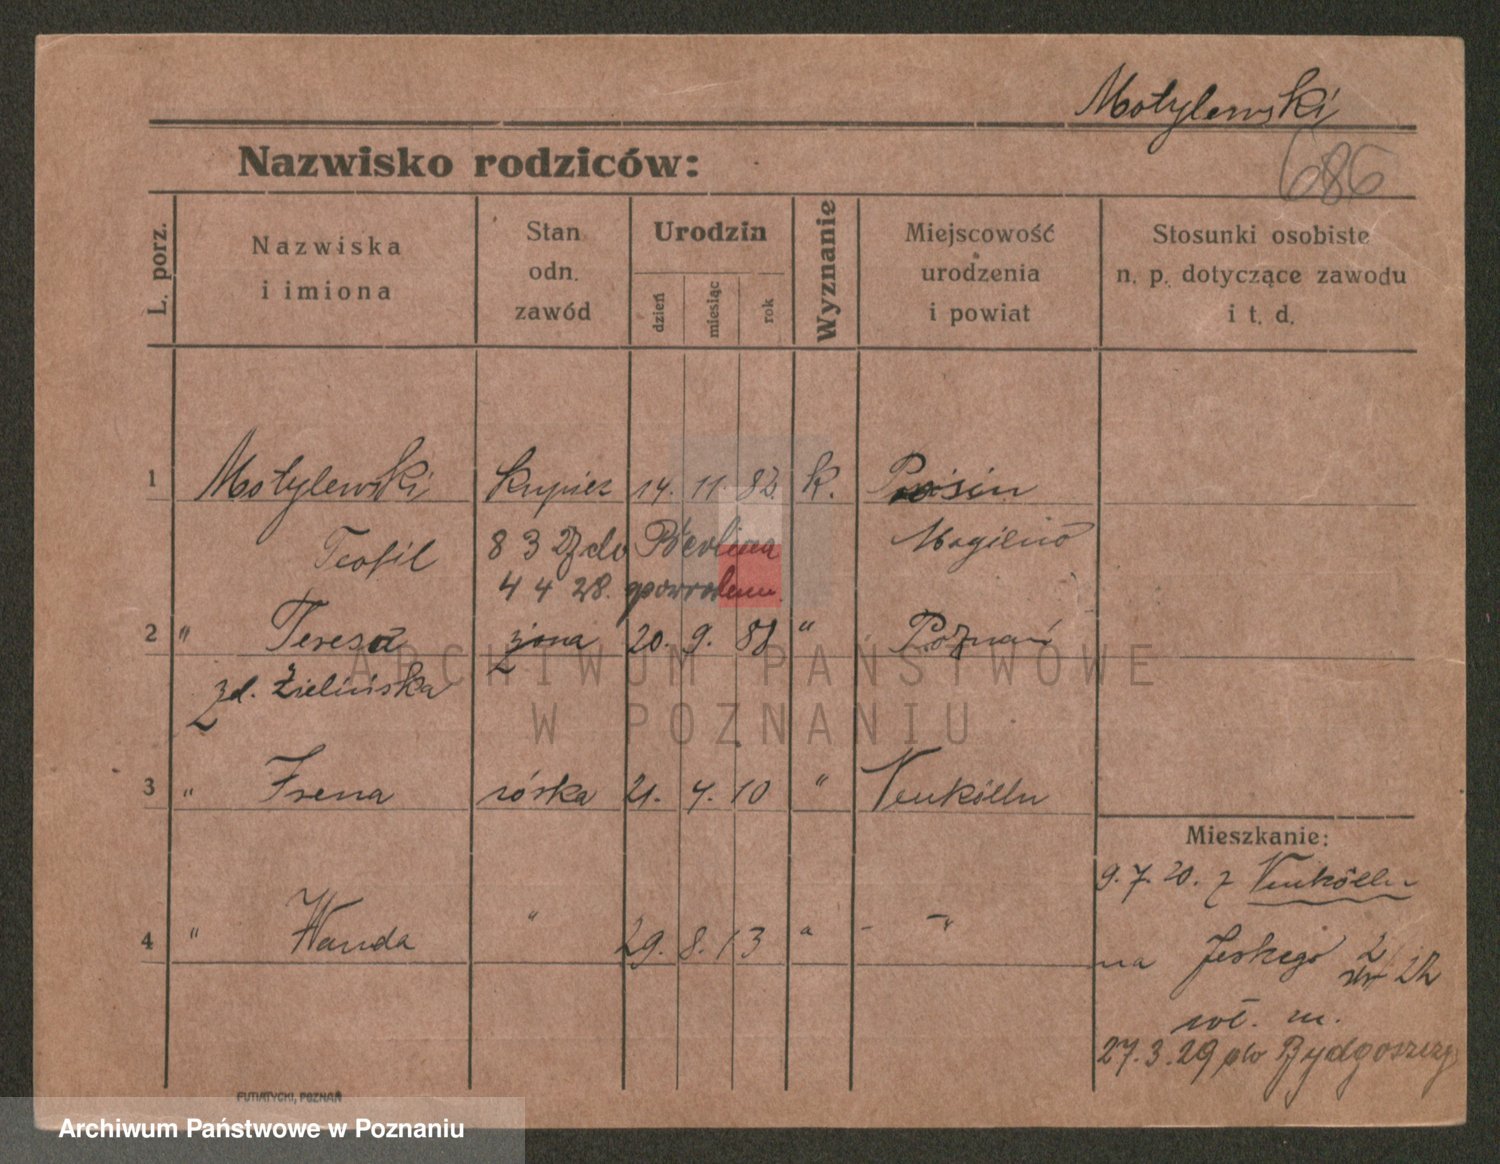 Motylewski
686
Nazwisko rodziców:
L. porz.
Nazwiska
i imiona
Stan
odn.
zawód
Urodzin
dzień
miesiąc
rok
Wyznanie
Miejscowość
urodzenia
i powiat
Stosunki osobiste
n. p. dotyczące zawodu
i t. d.
1 Motylewski kupiec 14. 11. 82 k.
Teofil 8 3 27 do Berlina Mogilno
4 4 28. z powrotem.
2 " Teresa żona 20. 9. 88 " Poznań
zd. Zielińska
3 " Irena córka 21. 4. 10 " Neukölln
Mieszkanie:
9. 7. 20. z Neukölln
4 " Wanda " 29. 8. 13 " - " -
na
27. 3. 29 do Bydgoszczy
FUTIATYCKI, POZNAŃ
ARCHIWUM PAŃSTWOWE
W POZNANIU
Archiwum Państwowe w Poznaniu